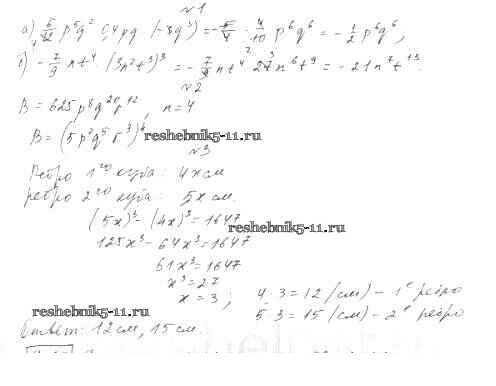 №1
а) 5/12 p⁵q² 0,4pq (-3q³) = -5/4 · 4/10 p⁶q⁶ = -1/2 p⁶q⁶,
б) -7/9 n t⁴ (3n²t³)³ = -7/9 n t⁴ 27 n⁶ t⁹ = -21n⁷t¹³.
№2
B = 625p⁸q²⁰r¹², n=4
B = (5p²q⁵r³)⁴
reshebnik5-11.ru
№3
Ребро 1го куба: 4x см
ребро 2го куба: 5x см.
(5x)³ - (4x)³ = 1647
reshebnik5-11.ru
125x³ - 64x³ = 1647
61x³ = 1647
x³ = 27
x = 3; 4·3=12 (см) - 1е ребро
5·3=15 (см) - 2е ребро
reshebnik5-11.ru
Ответ: 12 см, 15 см.